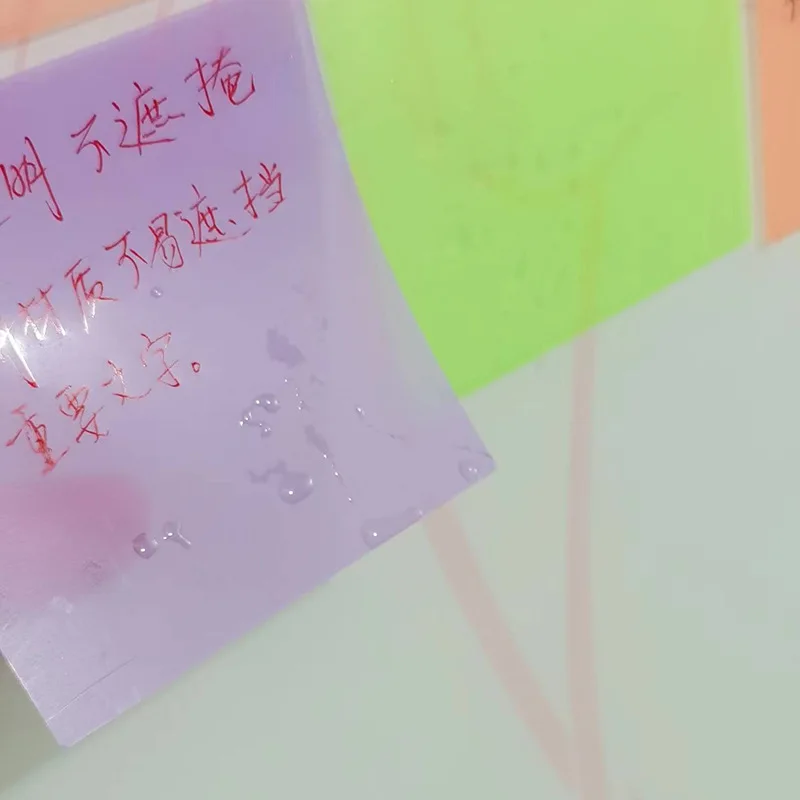 明 不遮掩
材质不易遮挡
重要文字。